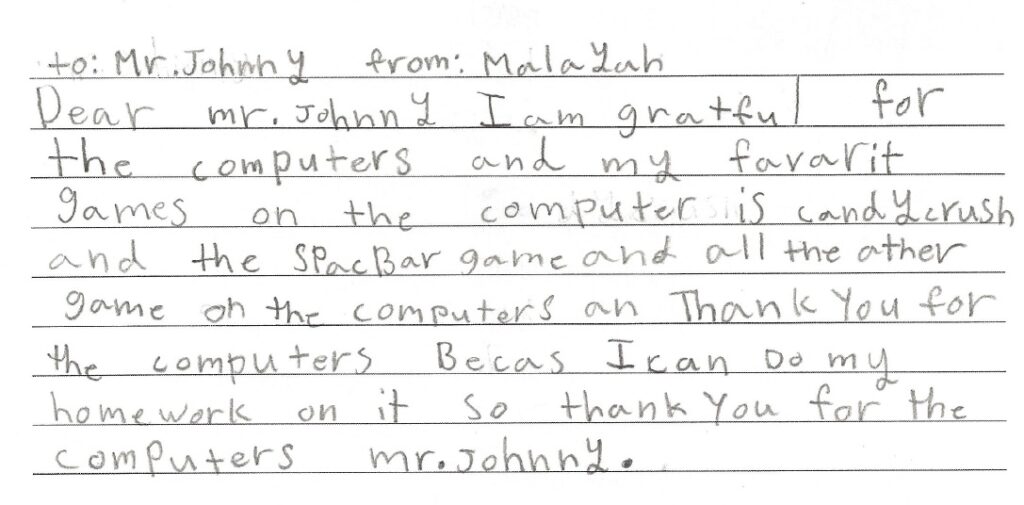 to: Mr. Johnny from: Malayah
Dear mr. Johnny I am gratful for
the computers and my favarit
games on the computer is candycrush
and the SPacBar game and all the ather
game on the computers an Thank You for
the computers Becas I can Do my
homework on it so thank You for the
computers mr. Johnny.